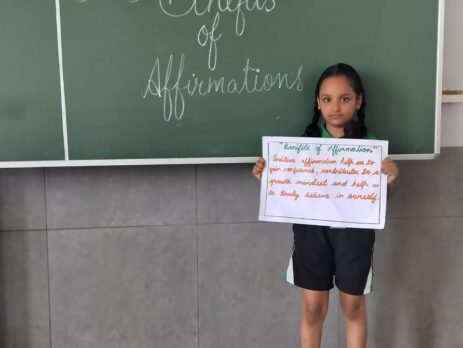 Benefits
of
Affirmations
"Benefits of Affirmation"
Positive affirmation help us to
gain confidence, contributes to a
growth mindset and help us
to truly believe in ourself.